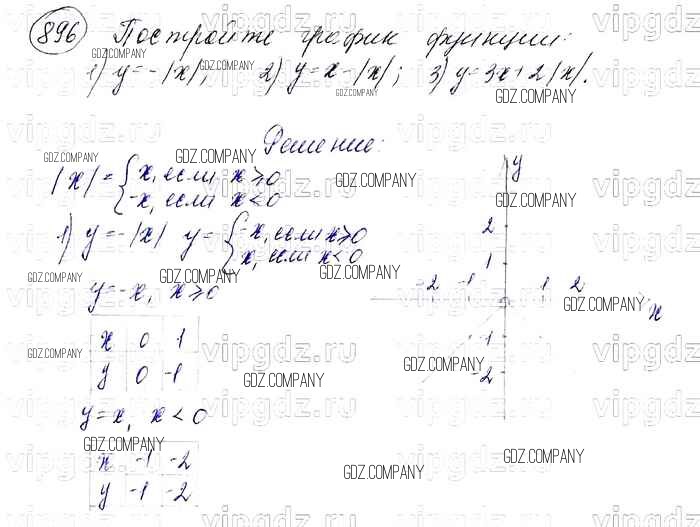 896 Постройте график функции:
1) y = -|x|; 2) y = x - |x|; 3) y = 3x + 2|x|.
Решение:
|x| = { x, если x ≥ 0
-x, если x < 0
1) y = -|x| y = { -x, если x ≥ 0
x, если x < 0
y = -x, x ≥ 0
x 0 1
y 0 -1
y = x, x < 0
x -1 -2
y -1 -2
y
2
1
-2 -1 1 2
x
-1
-2
GDZ.COMPANY
vipgdz.ru